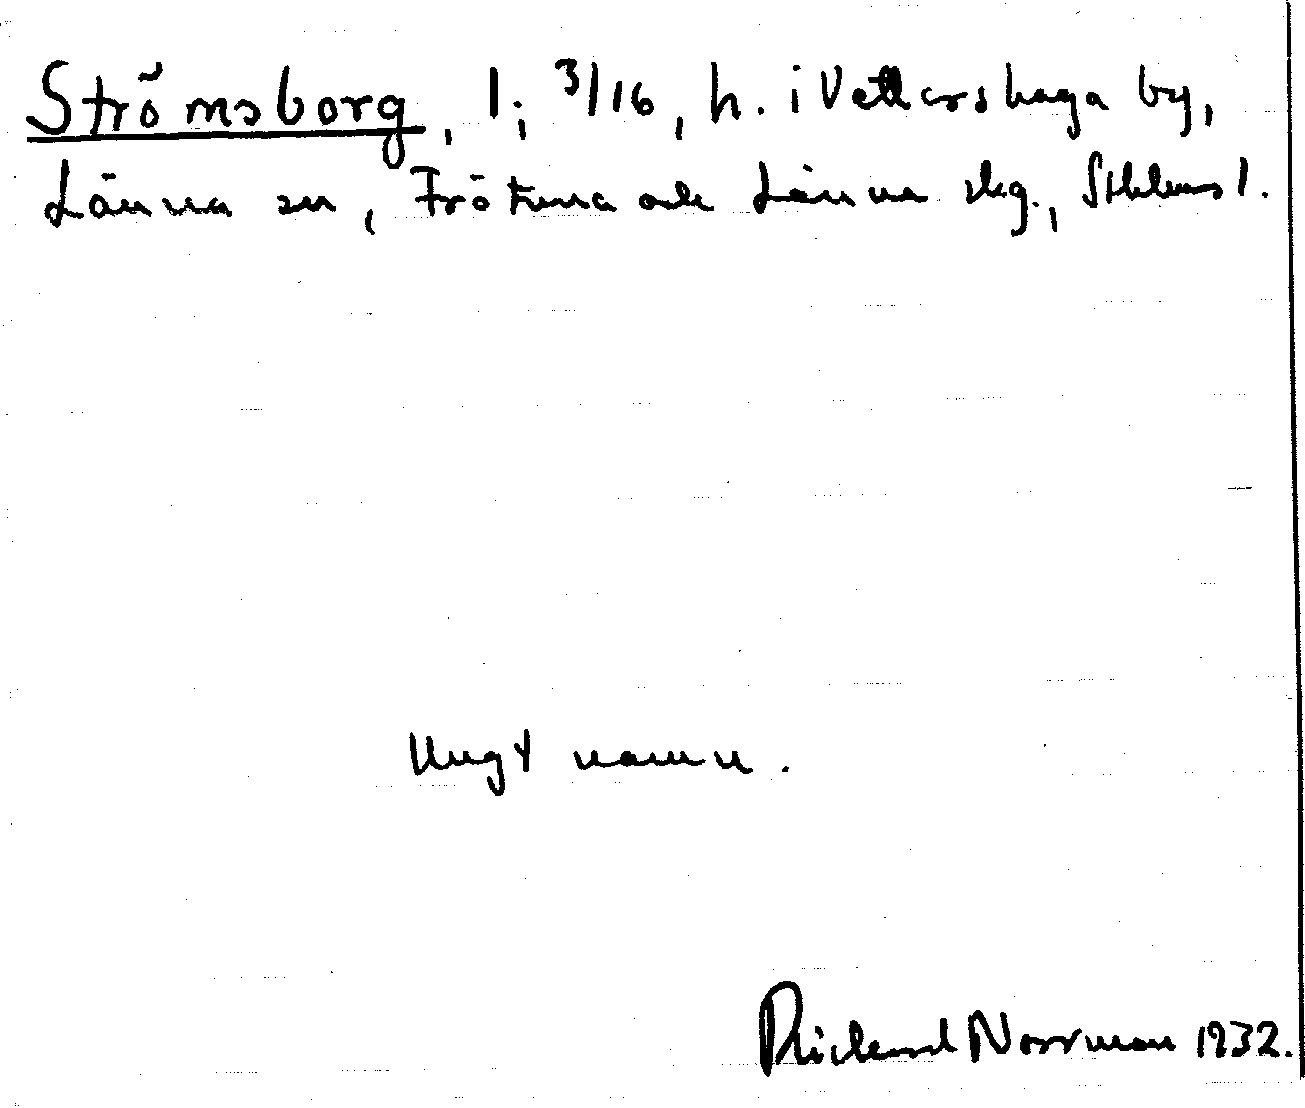 Strömsborg, 1; 3/16, h. i Vettershaga by,
Länna sn, Frötuna och Länna skg., Sthlms l.
Ungt namn.
Rickard Norrman 1932.